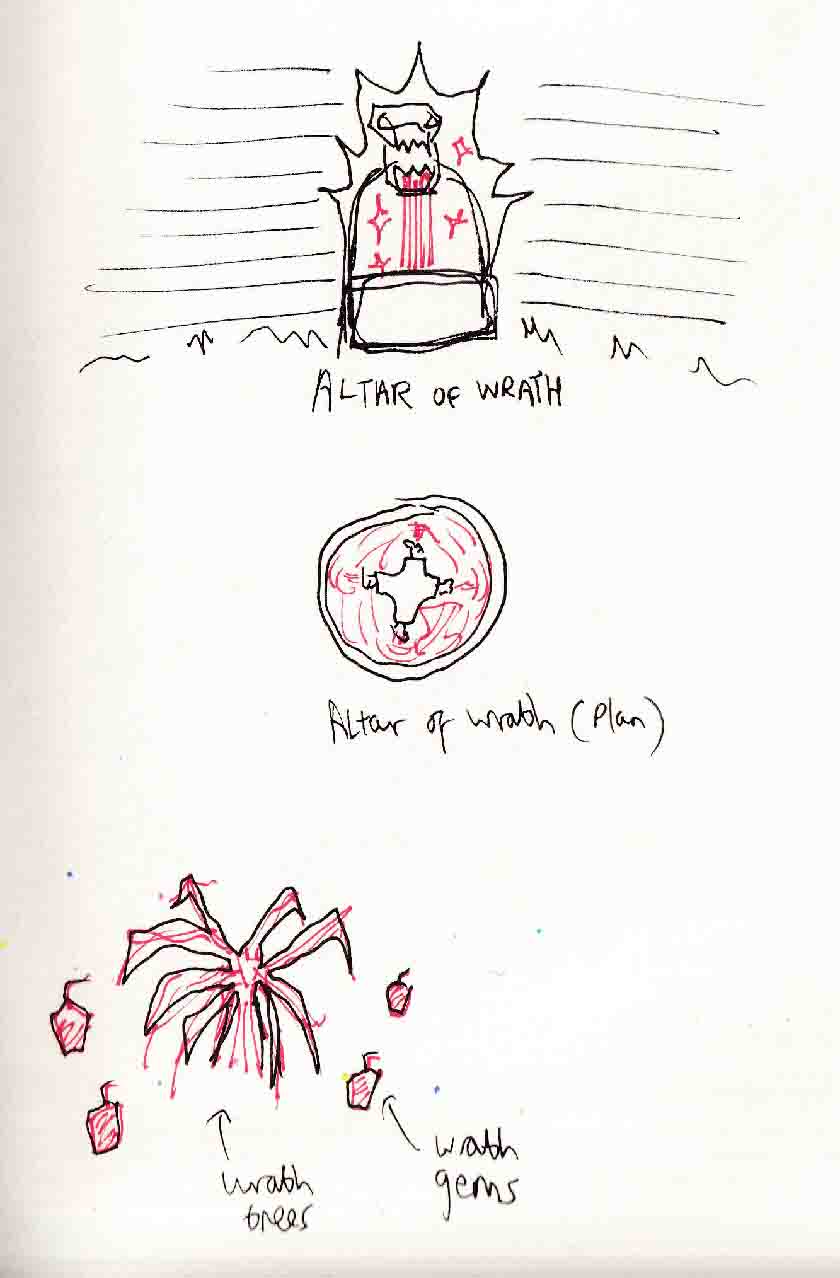 ALTAR OF WRATH
Altar of wrath (Plan)
wrath
gems
wrath
trees